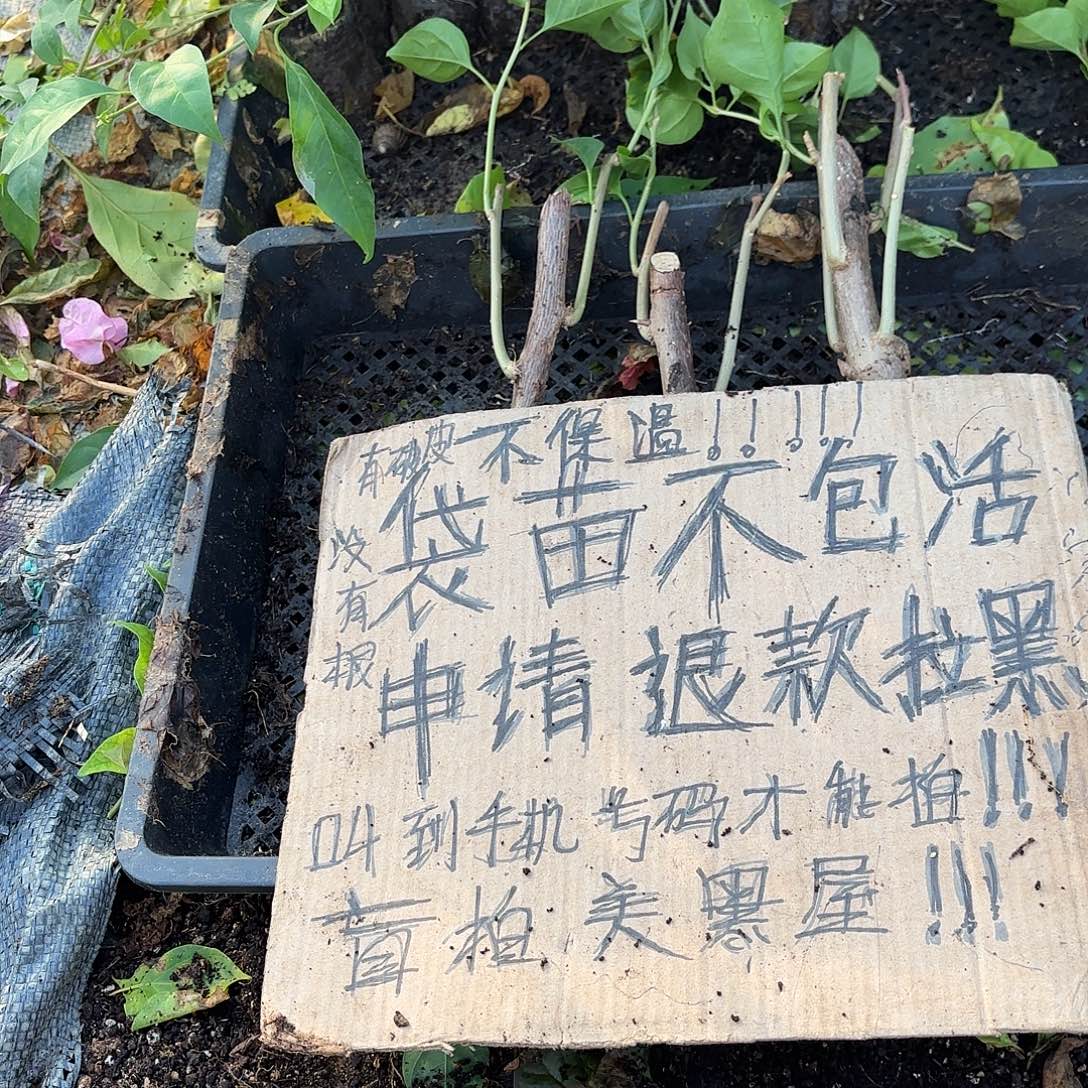 有破皮 不保温！！！！
袋苗不包活
没有根
申请退款拉黑
叫到手机号码才能拍！！！
盲拍关黑屋！！！